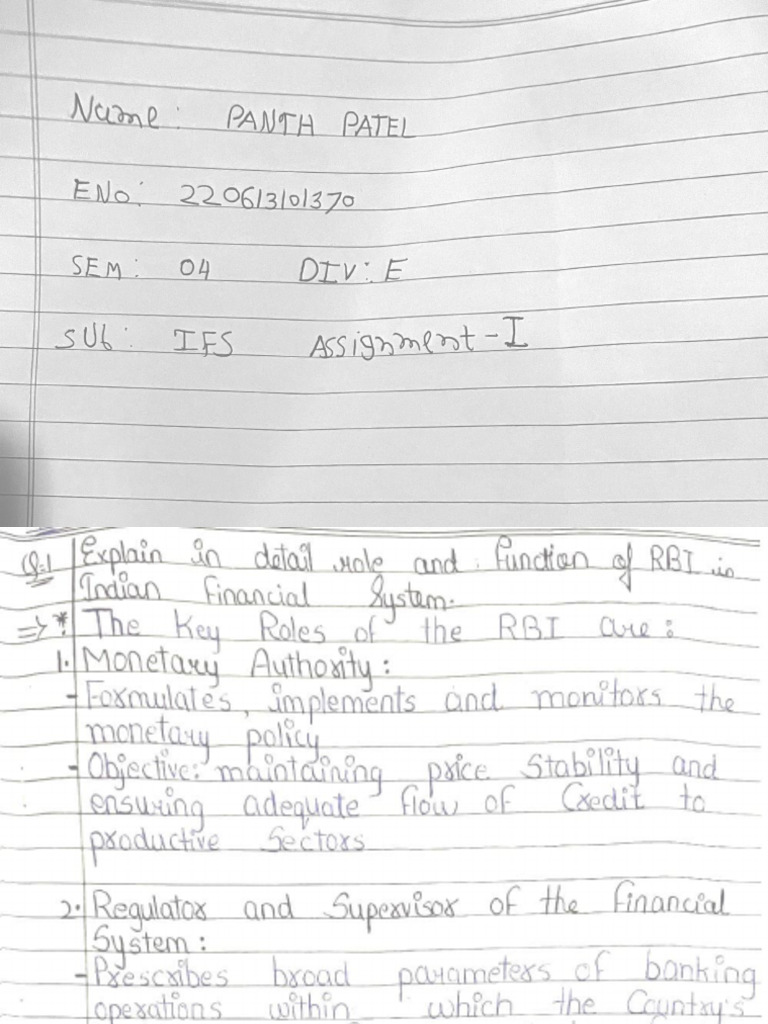 Name: PANTH PATEL
ENo: 220613101370
SEM: 04 DIV: E
SUb: IFS Assignment-I
Q:1 Explain in detail role and function of RBI in
Indian Financial System.
=> * The Key Roles of the RBI are:
1. Monetary Authority:
- Formulates, implements and monitors the
monetary policy
- Objective: maintaining price Stability and
ensuring adequate flow of Credit to
productive Sectors
2. Regulator and Supervisor of the financial
System:
- Prescribes broad parameters of banking
operations within which the Country's